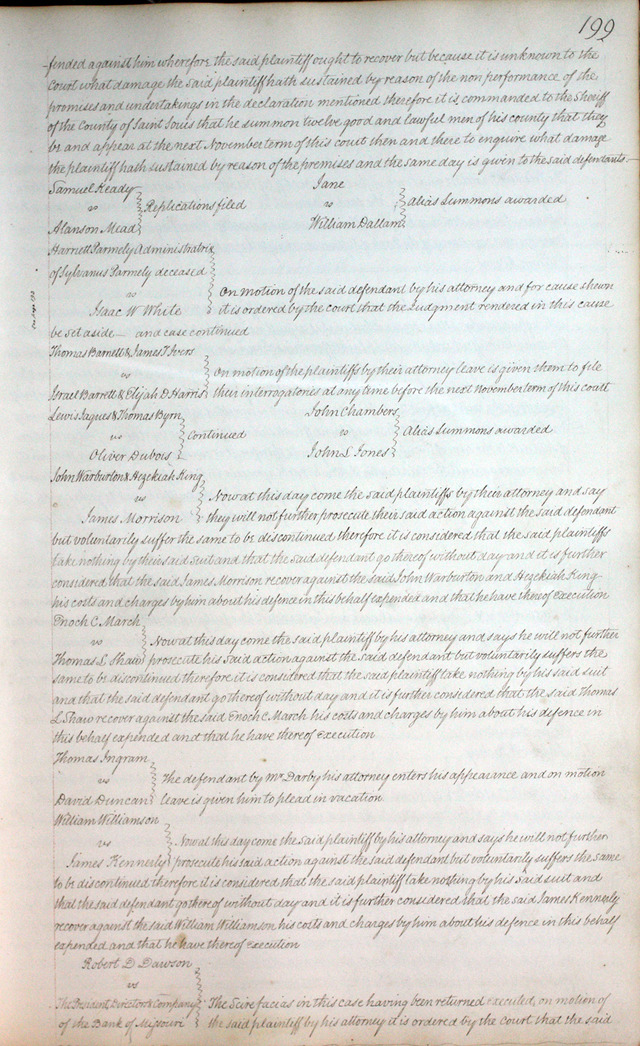 199
fended against him wherefore the said plaintiff ought to recover but because it is unknown to the
Court what damage the said plaintiff hath sustained by reason of the non performance of the
promises and undertakings in the declaration mentioned therefore it is commanded to the Sheriff
of the County of Saint Louis that he summon twelve good and lawful men of his county that they
be and appear at the next November term of this court then and there to enquire what damage
the plaintiff hath sustained by reason of the premises and the same day is given to the said defendants
Samuel Keady
vs
Alanson Mead
Replications filed
Jane
vs
William Dallam
Alias Summons awarded
Harriett Parmely Administratrix
of Sylvanus Parmely deceased
vs
Isaac W White
On motion of the said defendant by his attorney and for cause shewn
it is ordered by the court that the Judgment rendered in this cause
be set aside and case continued
Thomas Barnett & James T Ivers
vs
Israel Barrett & Elijah D Harris
On motion of the plaintiffs by their attorney leave is given them to file
their interrogatories at any time before the next November term of this court
Lewis Jaques & Thomas Byrn
vs
Oliver Dubois
Continued
John Chambers
vs
John L Jones
Alias Summons awarded
John Warburton & Hezekiah King
vs
James Morrison
Now at this day come the said plaintiffs by their attorney and say
they will not further prosecute their said action against the said defendant
but voluntarily suffer the same to be discontinued therefore it is considered that the said plaintiffs
take nothing by their said suit and that the said defendant go thereof without day and it is further
considered that the said James Morrison recover against the said John Warburton and Hezekiah King
his costs and charges by him about his defence in this behalf expended and that he have thereof execution
Enoch C March
vs
Thomas L Shaw
Now at this day come the said plaintiff by his attorney and says he will not further
prosecute his said action against the said defendant but voluntarily suffers the
same to be discontinued therefore it is considered that the said plaintiff take nothing by his said suit
and that the said defendant go thereof without day and it is further considered that the said Thomas
L Shaw recover against the said Enoch C March his costs and charges by him about his defence in
this behalf expended and that he have thereof execution
Thomas Ingram
vs
David Duncan
The defendant by Mr Darby his attorney enters his appearance and on motion
leave is given him to plead in vacation
William Williamson
vs
James Kennerly
Now at this day come the said plaintiff by his attorney and says he will not further
prosecute his said action against the said defendant but voluntarily suffers the same
to be discontinued therefore it is considered that the said plaintiff take nothing by his said suit and
that the said defendant go thereof without day and it is further considered that the said James Kennerly
recover against the said William Williamson his costs and charges by him about his defence in this behalf
expended and that he have thereof execution
Robert D Dawson
vs
The President Directors & Company
of the Bank of Missouri
The Scire facias in this case having been returned executed, on motion of
the said plaintiff by his attorney it is ordered by the court that the said